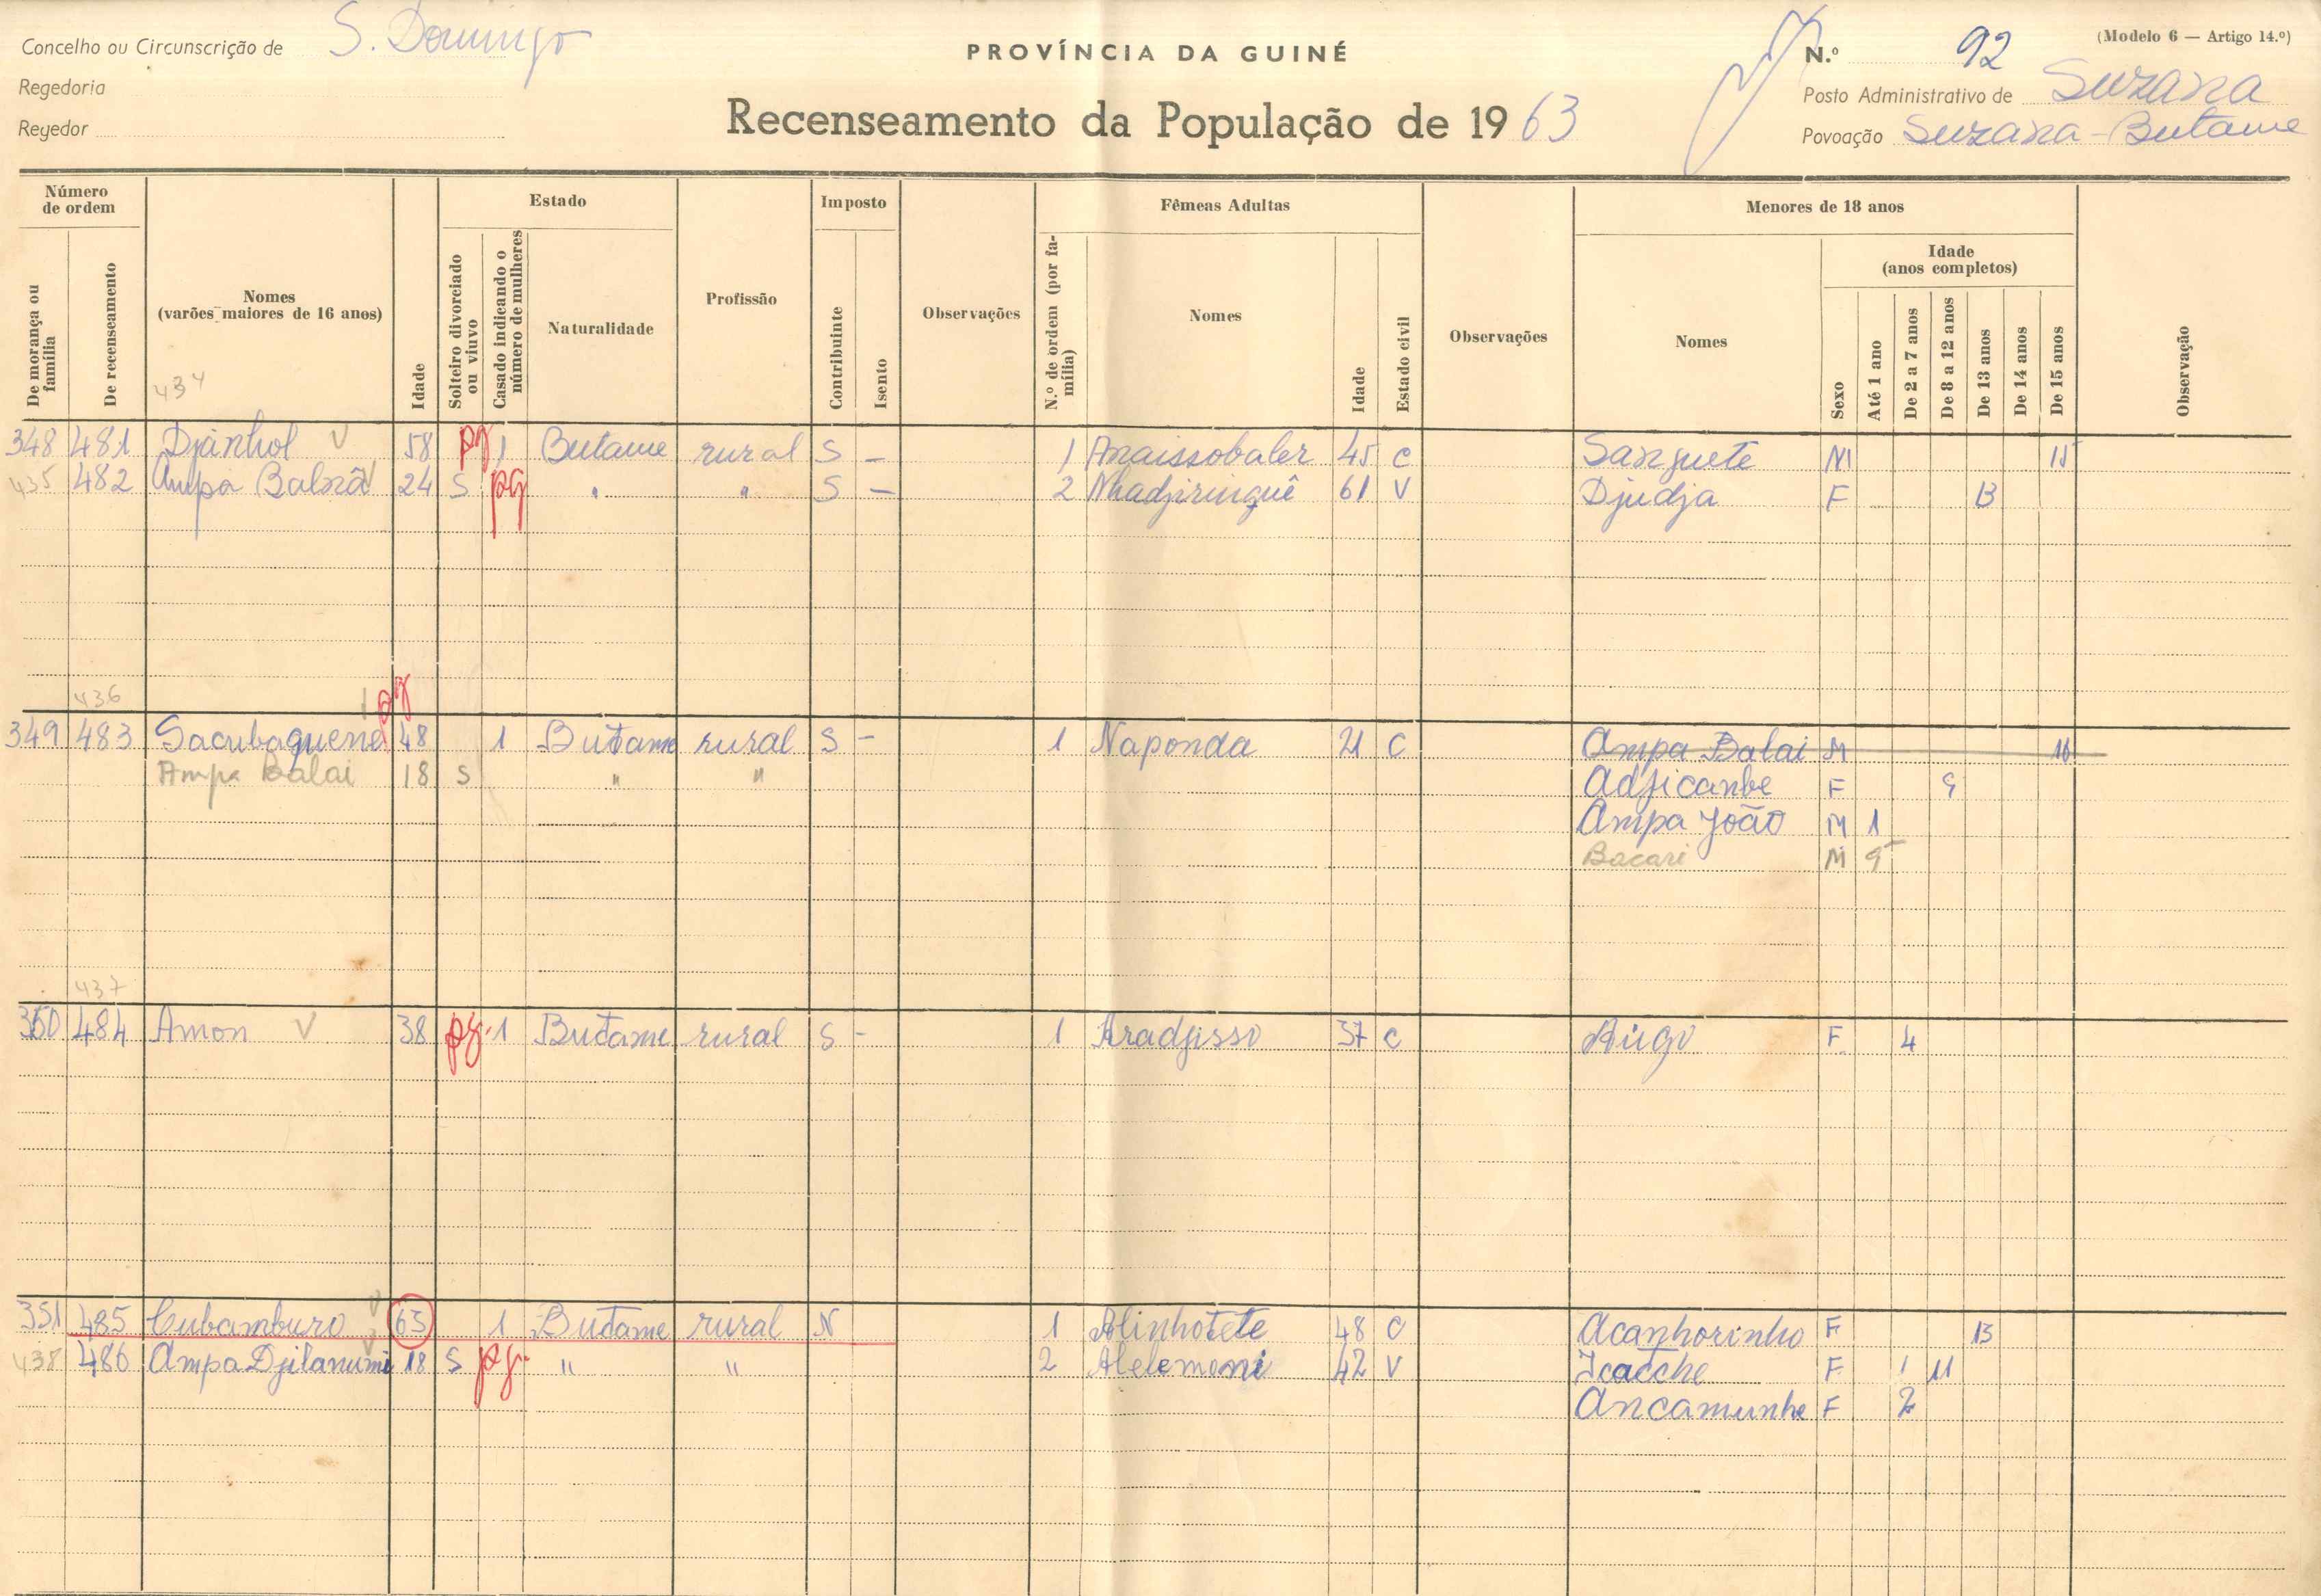 Concelho ou Circunscrição de S. Domingo
Regedoria
Regedor
PROVÍNCIA DA GUINÉ
Recenseamento da População de 1963
(Modelo 6 — Artigo 14.º)
N.º 92
Posto Administrativo de Suzana
Povoação Suzana - Butame
Número de ordem
De morança ou família
De recenseamento
Nomes (varões maiores de 16 anos)
434
Idade
Estado
Solteiro divorciado ou viuvo
Casado indicando o número de mulheres
Naturalidade
Profissão
Imposto
Contribuinte
Isento
Observações
Fêmeas Adultas
N.º de ordem (por família)
Nomes
Idade
Estado civil
Observações
Menores de 18 anos
Nomes
Sexo
Idade (anos completos)
Até 1 ano
De 2 a 7 anos
De 8 a 12 anos
De 13 anos
De 14 anos
De 15 anos
Observação
348 481 Djinhol V 58 pg 1 Butame rural S – 1 Anaissobaler 45 C Sanguete M 15
435 482 Ampa Balnã V 24 S pg " " S – 2 Nhadjiringuê 61 V Djudja F 13
436 pg
349 483 Sacubaguene 48 1 Butame rural S - 1 Naponda 21 C Ampa Balai M 16
Ampa Balai 18 S " " Adjicanbe F 9
Ampa João M 1
Bacari M
437
350 484 Amon V 38 pg. 1 Butame rural S - 1 Aradjisso 37 C F 4
351 485 Cubamburo V 63 1 Butame rural N 1 Alinhotete 48 C Acanhorinho F 13
438 486 Ampa Djilanumi 18 S pg. " " 2 Alelemoni 42 V Icacche F 11
Ancamunhe F 2